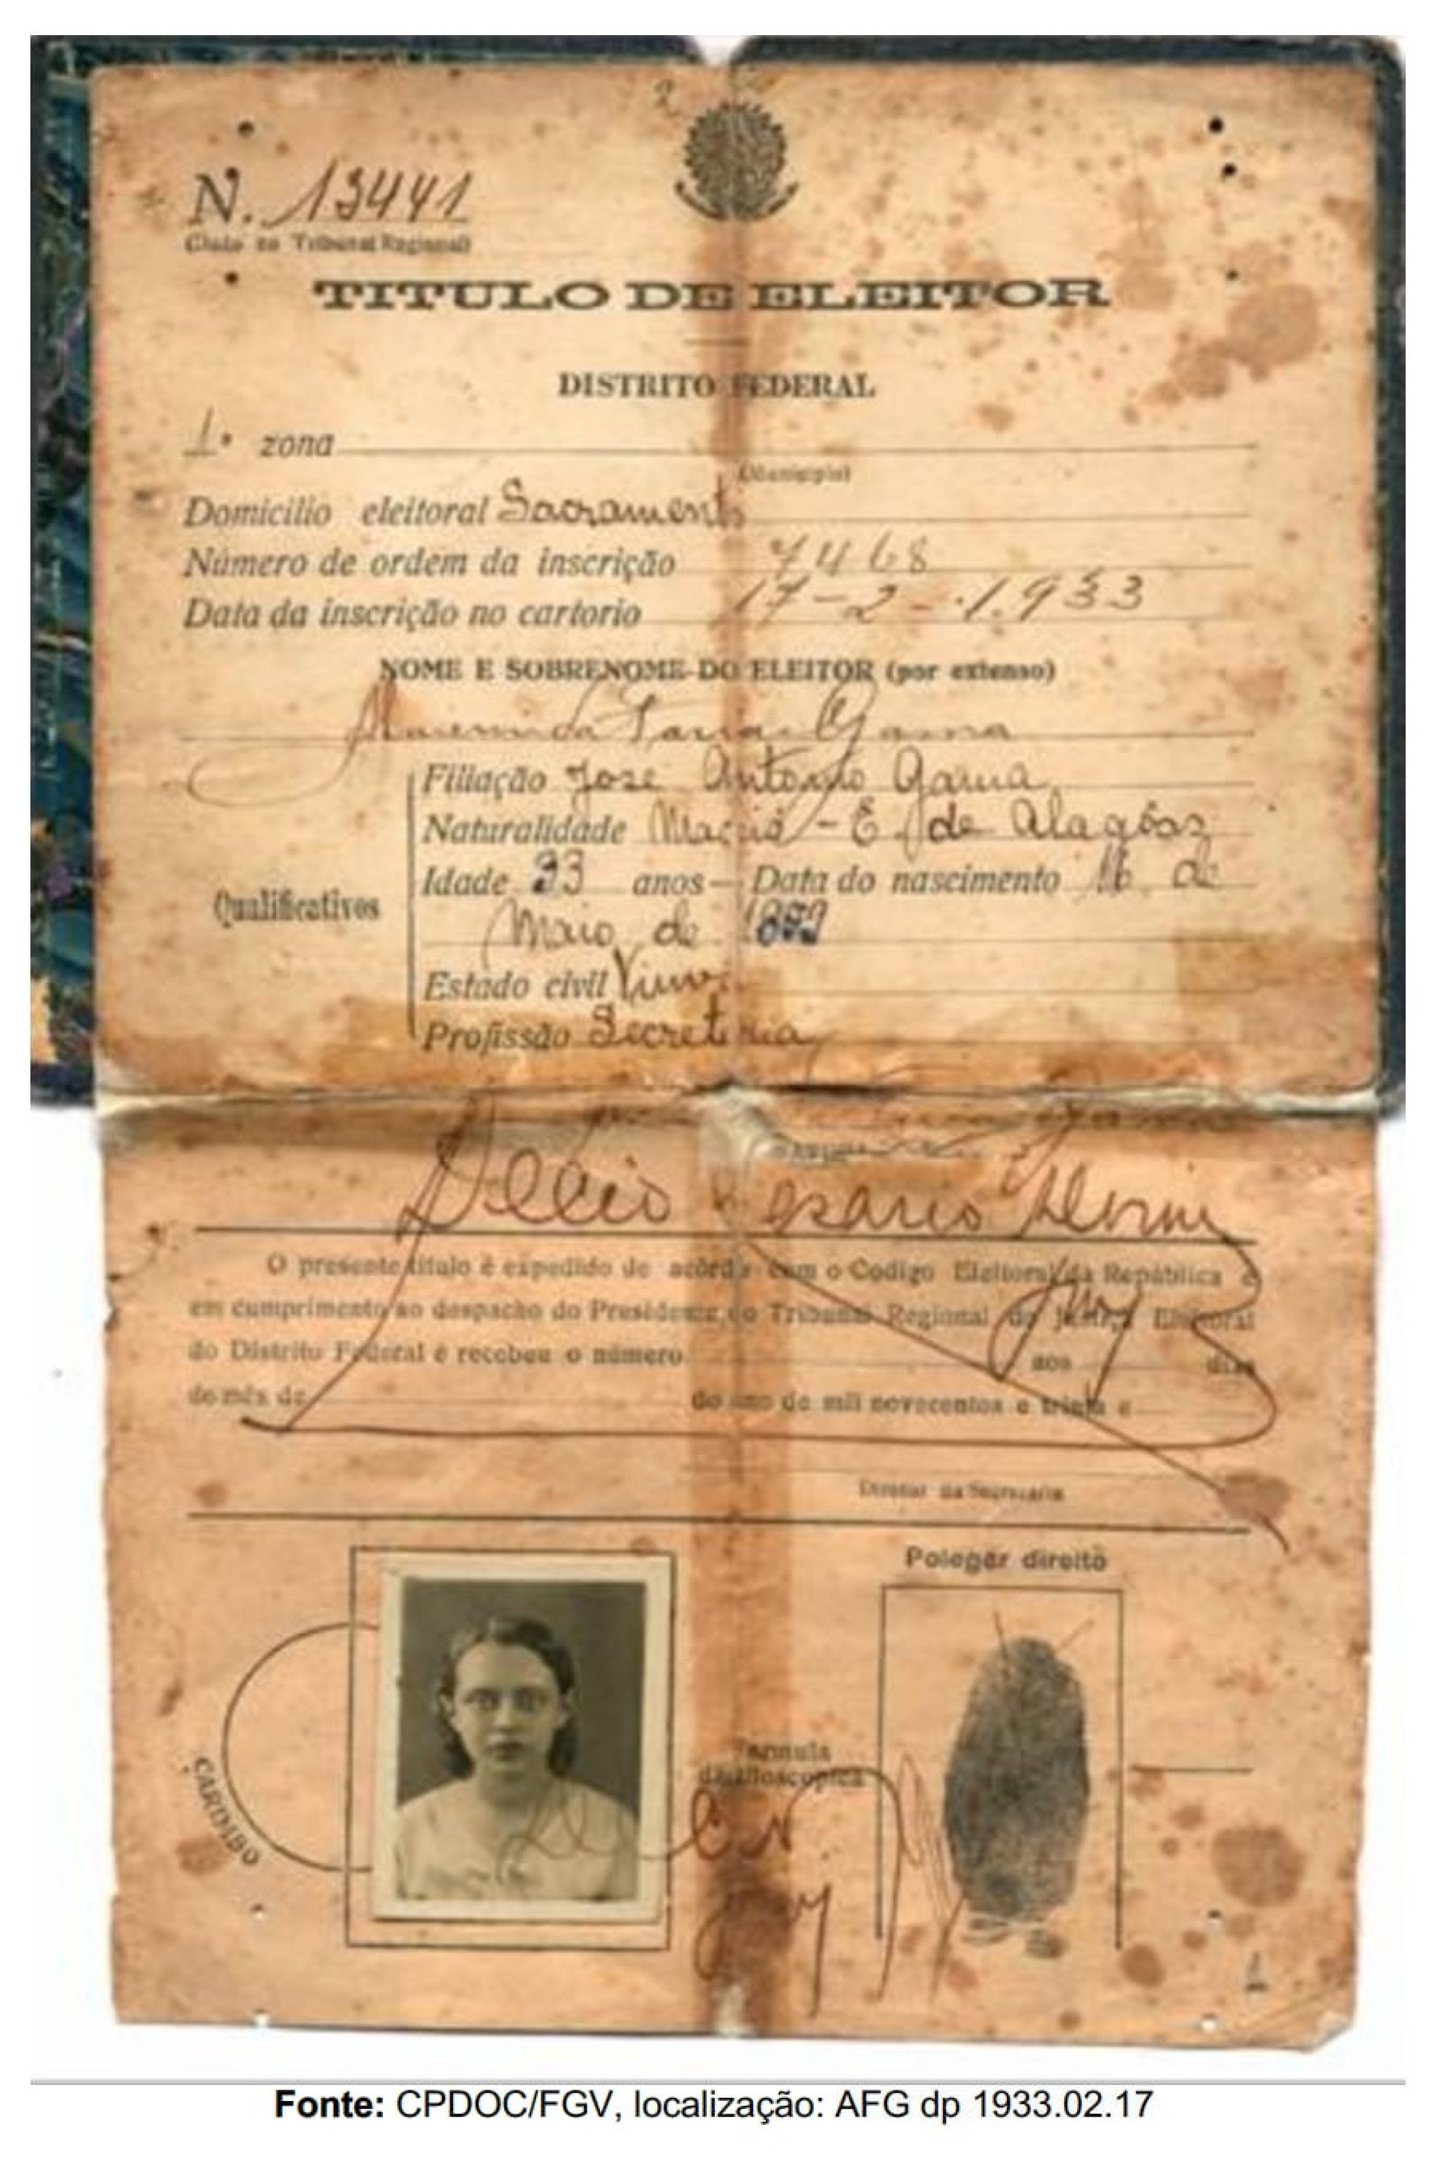 2
N. 13441
(Dado no Tribunal Regional)
TITULO DE ELEITOR
DISTRITO FEDERAL
1ª zona
(Municipio)
Domicilio eleitoral Sacramento
Número de ordem da inscrição 7468
Data da inscrição no cartorio 17-2-1.933
NOME E SOBRENOME DO ELEITOR (por extenso)
Gama
Filiação José Antonio Gama
Naturalidade Maceió - E. de Alagôas
Idade 33 anos - Data do nascimento 16 de
Qualificativos
Maio de
Estado civil
Profissão Secretaria
O presente titulo é expedido de acôrdo com o Codigo Eleitoral da República e
em cumprimento ao despacho do Presidente do Tribunal Regional de Justiça Eleitoral
do Distrito Federal e recebeu o número aos dias
do mês de do ano de mil novecentos e trinta e
Diretor da Secretaria
Polegar direito
CARIMBO
Fórmula
datiloscopica
1
Fonte: CPDOC/FGV, localização: AFG dp 1933.02.17